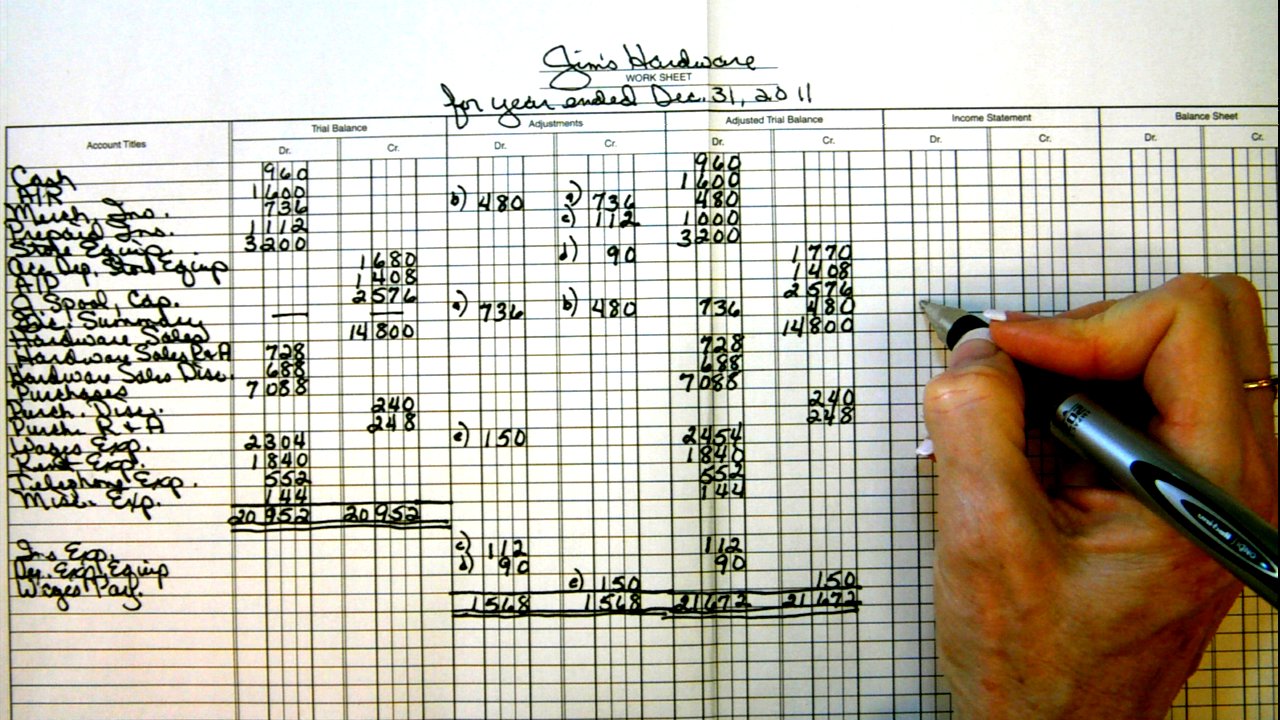 Jim's Hardware
WORK SHEET
for year ended Dec. 31, 2011
Account Titles Trial Balance Adjustments Adjusted Trial Balance Income Statement Balance Sheet
Dr. Cr. Dr. Cr. Dr. Cr. Dr. Cr. Dr. Cr.
Cash 960 960
A/R 1600 1600
Merch. Inv. 736 b) 480 a) 736 480
Prepaid Ins. 1112 c) 112 1000
Store Equip. 3200 3200
Acc. Dep. Store Equip 1680 d) 90 1770
A/P 1408 1408
J. Spool, Cap. 2576 2576
Inc. Summary — — a) 736 b) 480 736 480
Hardware Sales 14800 14800
Hardware Sales R&A 728 728
Hardware Sales Disc. 688 688
Purchases 7088 7088
Purch. Disc. 240 240
Purch. R & A 248 248
Wages Exp. 2304 e) 150 2454
Rent Exp. 1840 1840
Telephone Exp. 552 552
Misc. Exp. 144 144
20952 20952
Ins Exp. c) 112 112
Dep. Exp. Equip d) 90 90
Wages Pay. e) 150 150
1568 1568 21672 21672